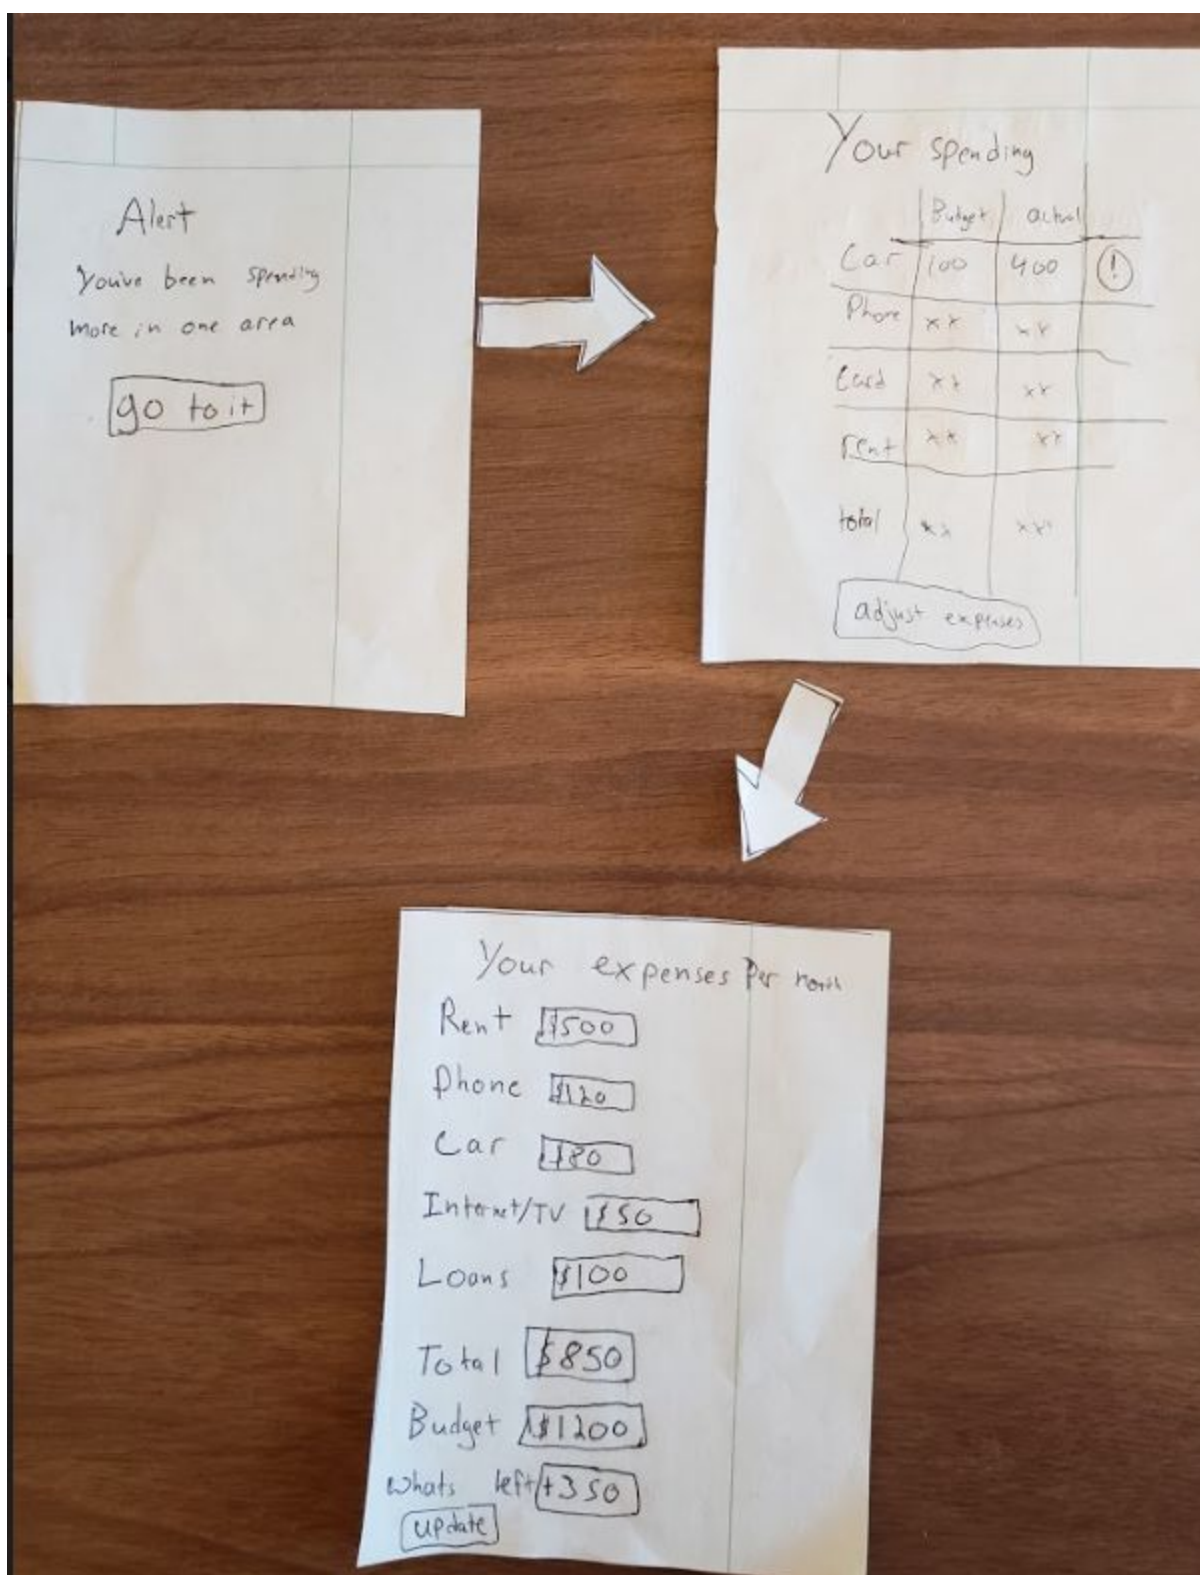 Alert
You've been spending
more in one area
go to it
Your spending
Budget actual
Car 100 400 !
Phone xx xx
Card xx xx
rent xx xx
total xx xxx
adjust expenses
Your expenses Per month
Rent $500
Phone $120
Car $80
Internet/TV $50
Loans $100
Total $850
Budget $1200
whats left +350
update